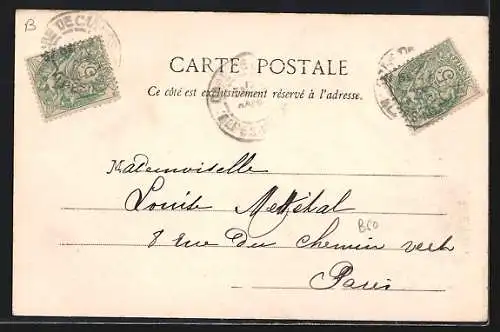 B
CARTE POSTALE
Ce côté est exclusivement réservé à l'adresse.
Mademoiselle
Louise
8 rue du chemin vert
B60
Paris